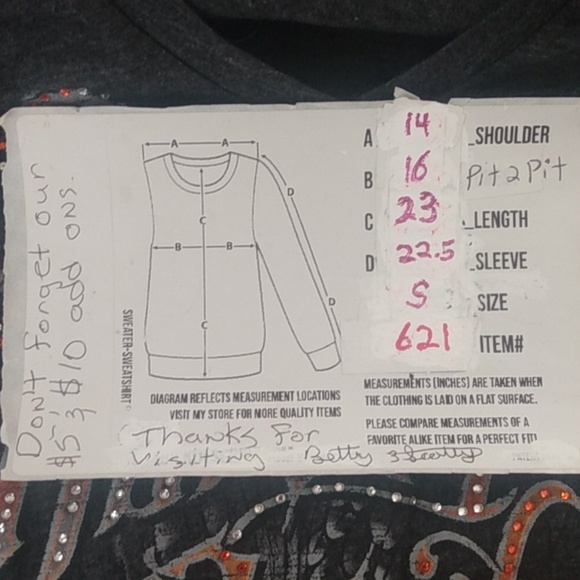 Don't forget our
$5 & $10 add ons.
A A
D
C
B B
D
C
SWEATER-SWEATSHIRT
DIAGRAM REFLECTS MEASUREMENT LOCATIONS
VISIT MY STORE FOR MORE QUALITY ITEMS
A 14 _SHOULDER
B 16 Pit 2 Pit
C 23 _LENGTH
D 22.5 _SLEEVE
S SIZE
621 ITEM#
MEASUREMENTS (INCHES) ARE TAKEN WHEN
THE CLOTHING IS LAID ON A FLAT SURFACE.
PLEASE COMPARE MEASUREMENTS OF A
FAVORITE ALIKE ITEM FOR A PERFECT FIT!
Thanks for
visiting Betty